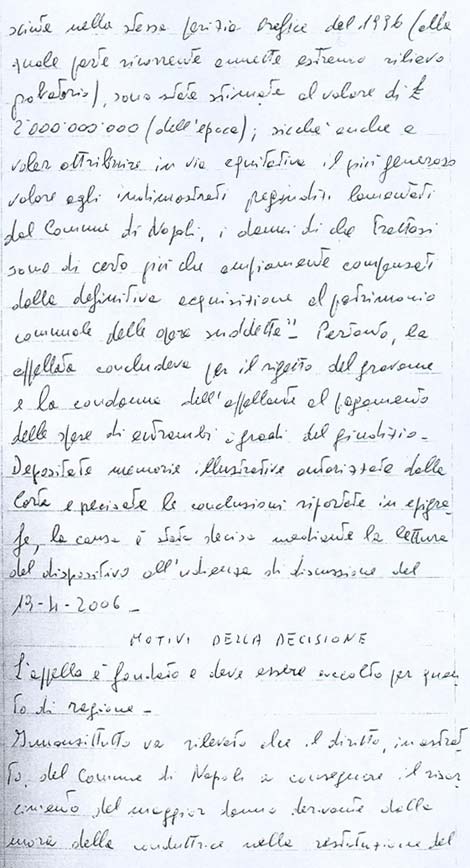 sciute nella stessa perizia Orefice del 1996 (alla
quale parte ricorrente annette estremo rilievo
probatorio), sono state stimate al valore di £
2'000'000'000 (dell'epoca); sicché anche a
voler attribuire in via equitativa il più generoso
valore agli indimostrati pregiudizi lamentati
dal Comune di Napoli, i danni di che trattasi
sono di certo più che ampiamente compensati
dalla definitiva acquisizione al patrimonio
comunale delle opere suddette" – Pertanto, la
appellata concludeva per il rigetto del gravame
e la condanna dell'appellante al pagamento
delle spese di entrambi i gradi del giudizio –
Depositate memorie illustrative autorizzate dalla
Corte e precisate le conclusioni riportate in epigra-
fe, la causa è stata decisa mediante la lettura
del dispositivo all'udienza di discussione del
19-4-2006 –
MOTIVI DELLA DECISIONE
L'appello è fondato e deve essere accolto per quan-
to di ragione –
Innanzitutto va rilevato che il diritto, in astrat-
to, del Comune di Napoli a conseguire il risar-
cimento del maggior danno derivante dalla
mora della conduttrice nella restituzione del